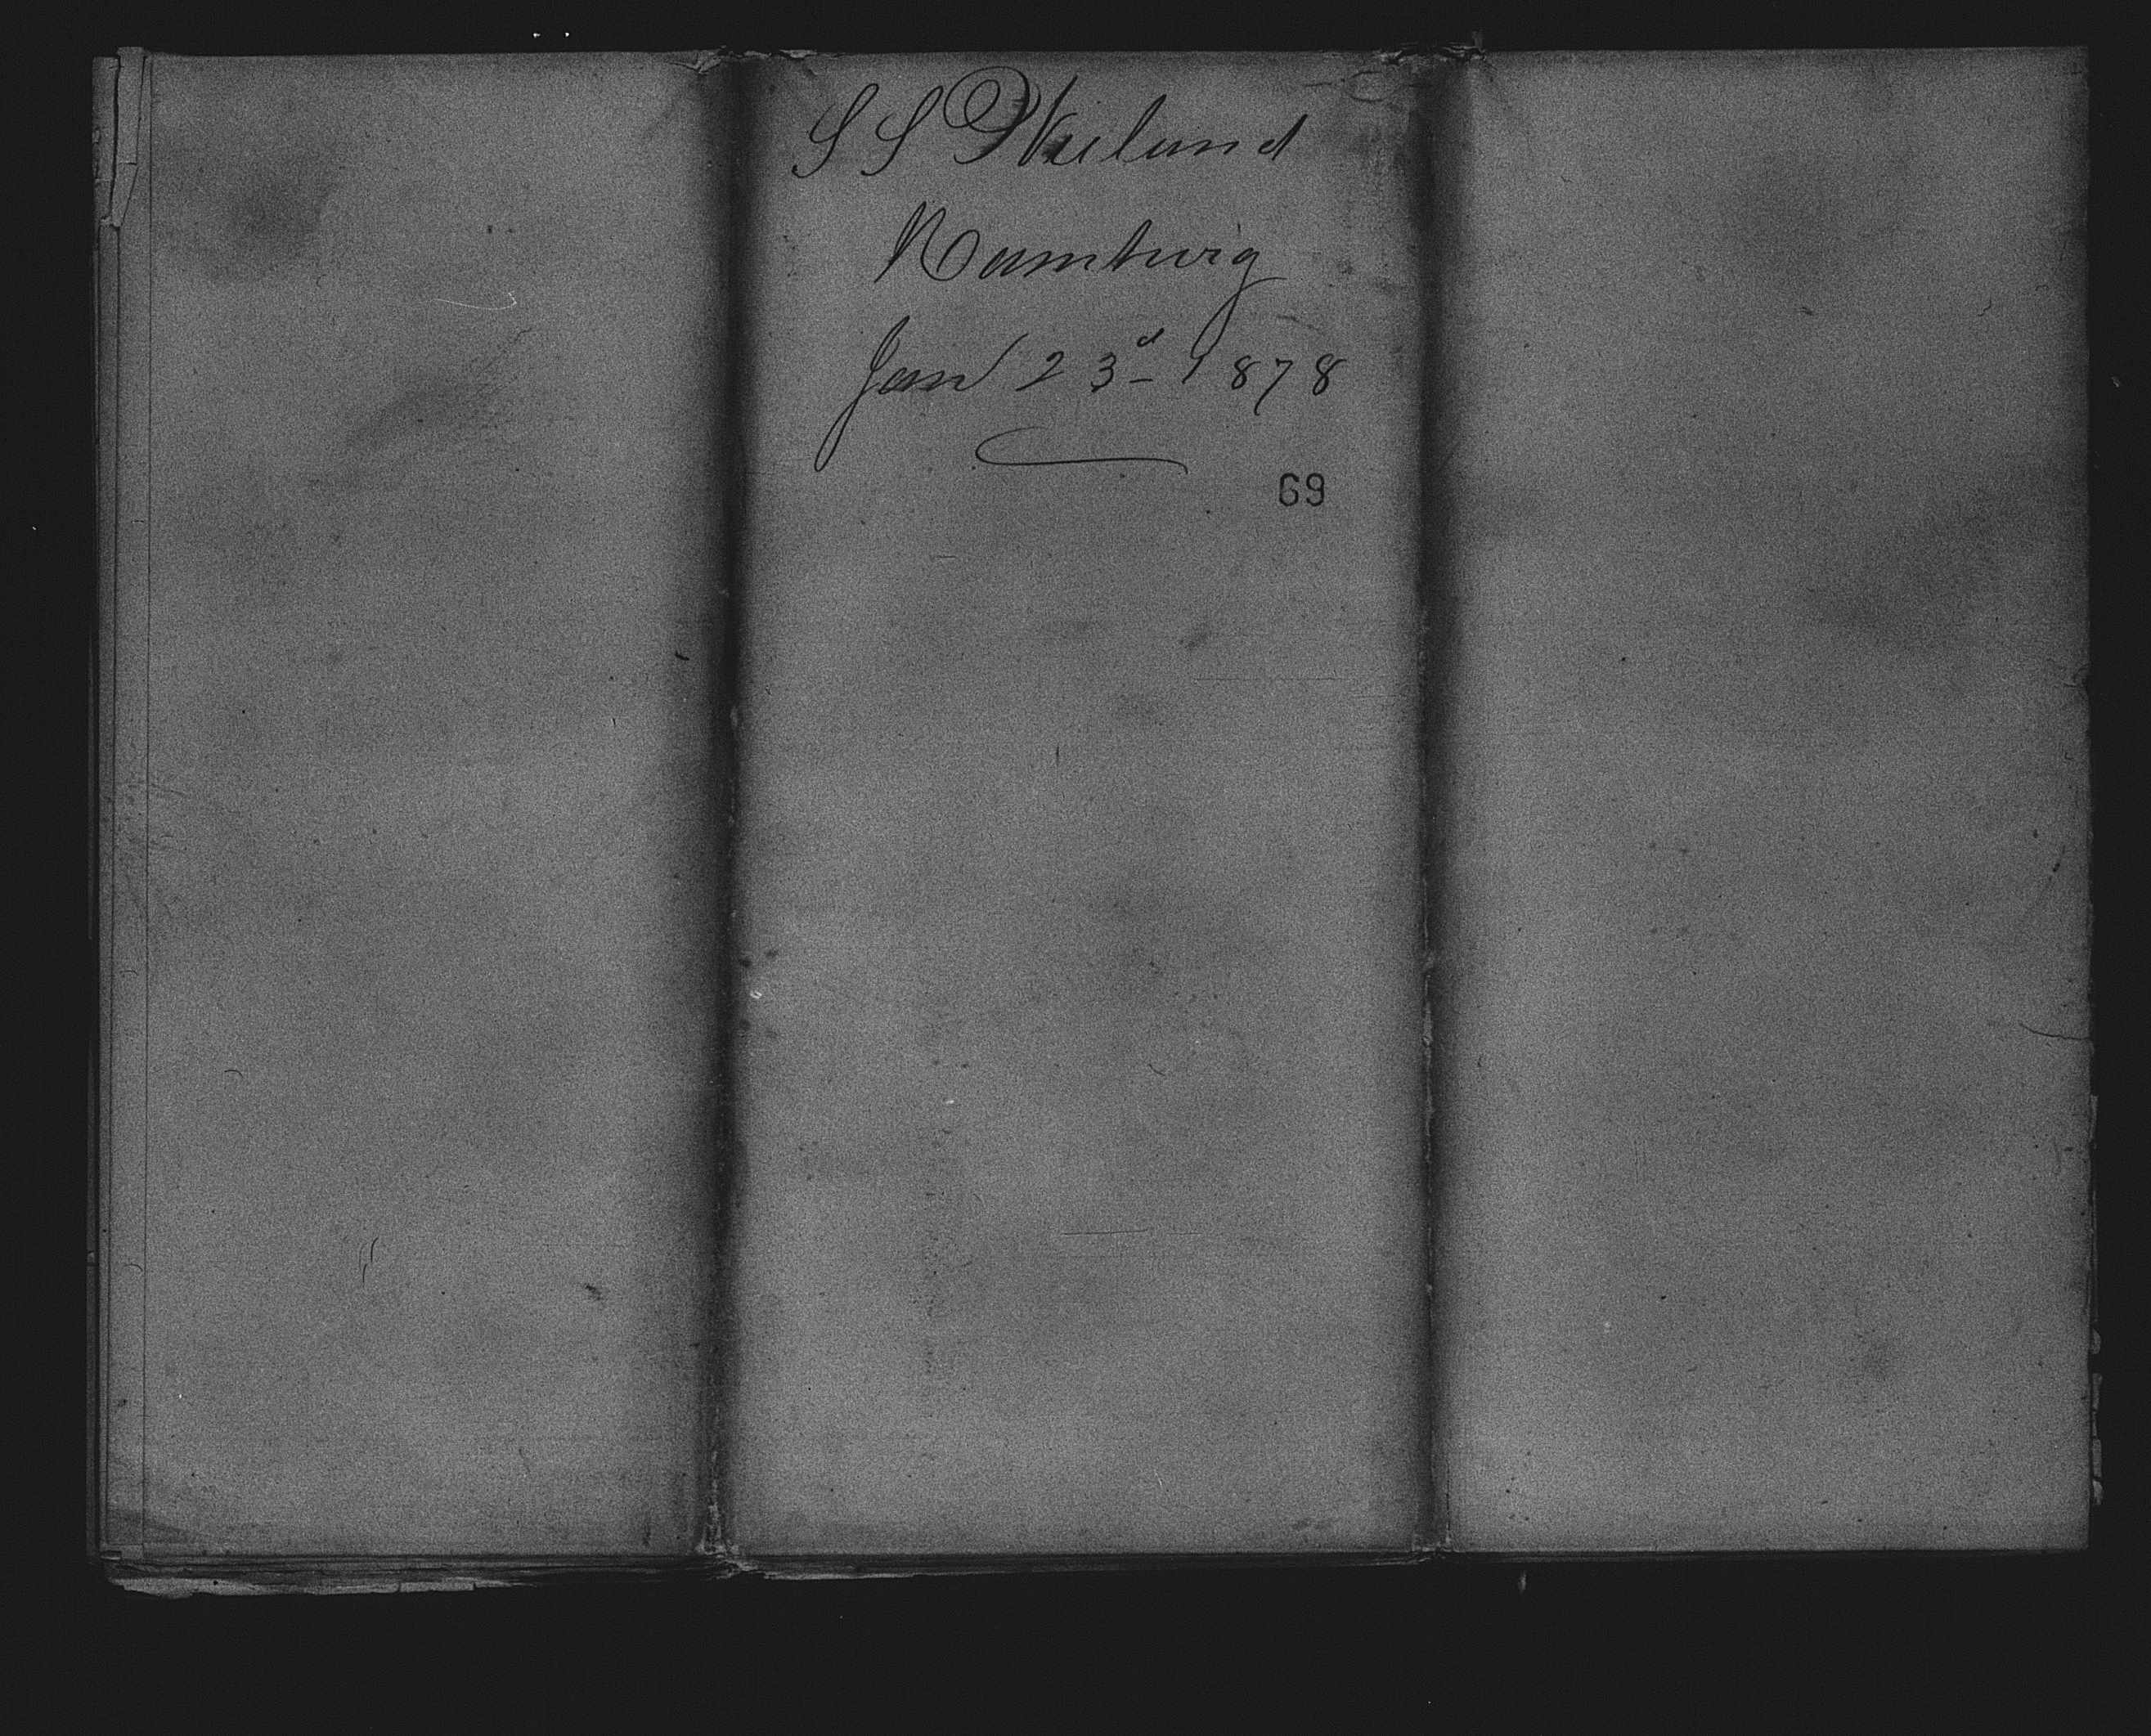 SS Wieland
Hamburg
Jan 23d 1878
69